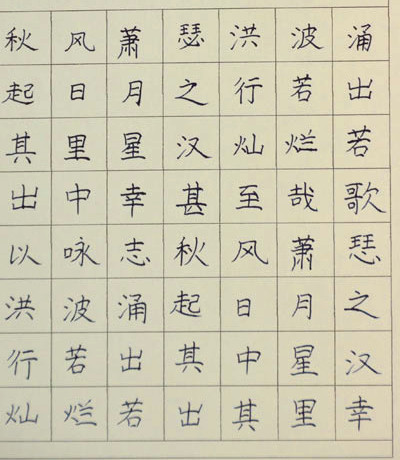 秋风萧瑟洪波涌
起日月之行若出
其里星汉灿烂若
出中幸甚至哉歌
以咏志秋风萧瑟
洪波涌起日月之
行若出其中星汉
灿烂若出其里幸